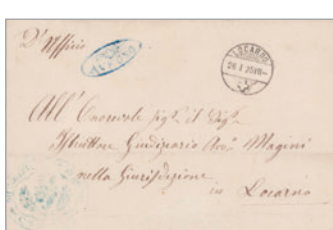 D'Ufficio
LOCARNO
All' Onorevole Sigr. il Sigr.
Istruttore Giudiziario Avv. Magini
nella Giurisdizione
in Locarno